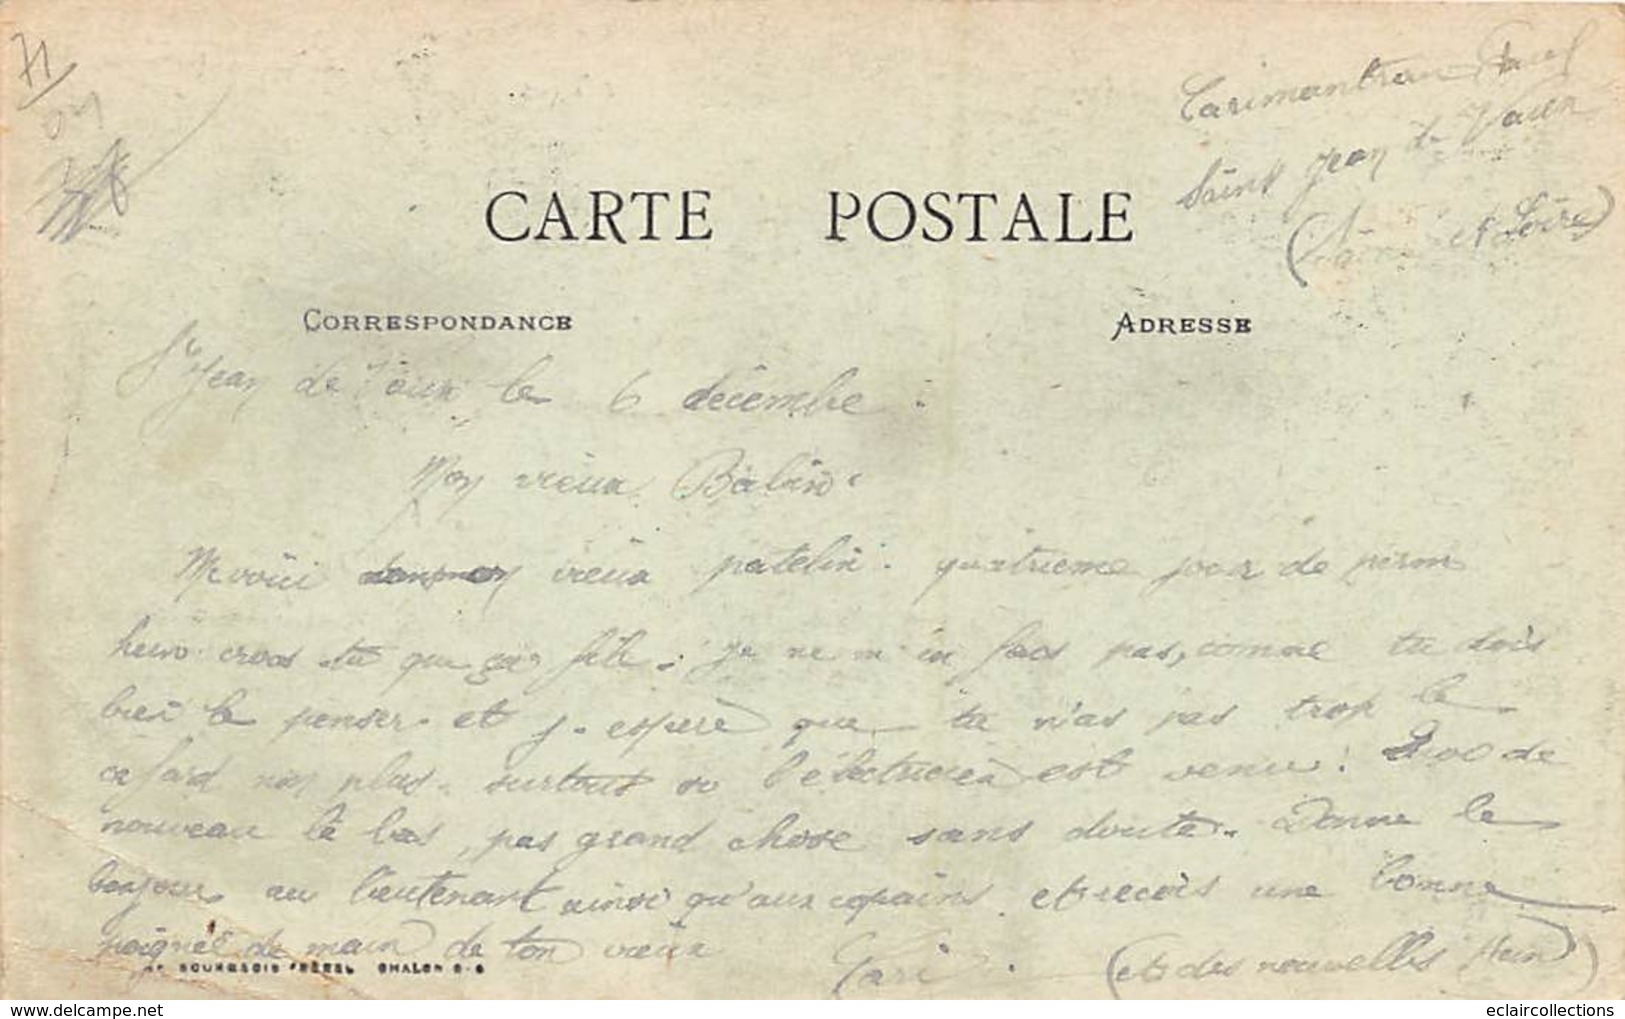 71
Carimantran Paul
Saint Jean de Vaux
(Saône et Loire)
CARTE POSTALE
CORRESPONDANCE
ADRESSE
St Jean de Vaux le 6 décembre.
Mon vieux Balin
Me voici dans mon vieux patelin. quatrieme jour de perm
hein crois tu que ça file. Je ne m'en fais pas, comme tu dois
bien le penser. et j'espere que tu n'as pas trop le
cafard non plus. surtout si l'électricien est venu. Quoi de
nouveau là bas, pas grand chose sans doute. Donne le
bonjour au lieutenant ainsi qu'aux copains. et reçois une bonne
poignée de main de ton vieux
Cari. (et des nouvelles Hein)
BOURGEOIS FRÈRES, CHALON S-S
eclaircollections@delcampe.net